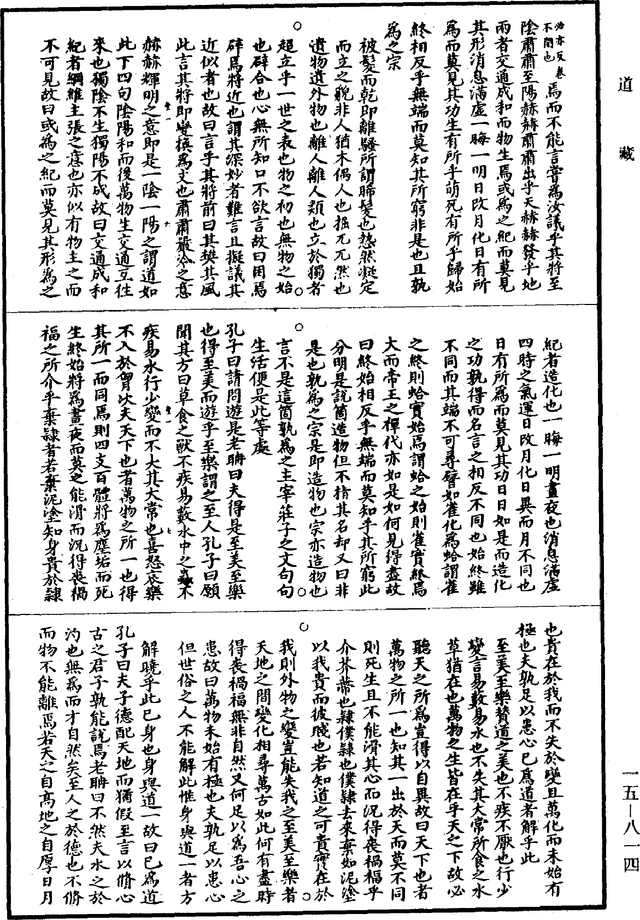 道藏
必亦反卷不開也焉而不能言嘗為汝議乎其將至
陰肅肅至陽赫赫肅肅出乎天赫赫發乎地
兩者交通成和而物生焉或為之紀而莫見
其形消息滿虛一晦一明日改月化日有所
為而莫見其功生有所乎萌死有所乎歸始
終相反乎無端而莫知其所窮非是也且孰
為之宗
被髮而乾即離騷所謂晞髮也慹然凝定
而立之貌非人猶木偶人也掘兀兀然也
遺物遺外物也離人離人類也立於獨者
超立乎一世之表也物之初也無物之始
也辟合也心無所知口不欲言故曰困焉
辟焉將近也謂其深妙者難言且擬議其
近似者也故曰言乎其將前曰其獘其風
此言其將即變換為文也肅肅嚴冷之意
赫赫輝明之意即是一陰一陽之謂道如
此下四句陰陽和而後萬物生交通互往
來也獨陰不生獨陽不成故曰交通成和
紀者綱維主張之意也亦似有物主之而
不可見故曰或為之紀而莫見其形為之
紀者造化也一晦一明晝夜也消息滿虛
四時之氣運日改月化日異而月不同也
日有所為而莫見其功日日如是而造化
之功孰得而名言之相反不同也始終雖
不同而其端不可尋譬如雀化為蛤謂雀
之終則蛤實始焉謂蛤之始則雀實終焉
大而帝王之禪代亦如是如何見得盡故
曰終始相反乎無端而莫知乎其所窮此
分明是說箇造物但不指其名却又曰非
是也孰為之宗是即造物也宗亦造物也
言不是這箇孰為之主宰莊子之文句句
生活便是此等處
孔子曰請問遊是老聃曰夫得是至美至樂
也得至美而遊乎至樂謂之至人孔子曰願
聞其方曰草食之獸不疾易藪水中之蟲不
疾易水行少變而不失其大常也喜怒哀樂
不入於胷次夫天下也者萬物之所一也得
其所一而同焉則四支百體將為塵垢而死
生終始將為晝夜而莫之能滑而況得喪禍
福之所介乎棄隸者若棄泥塗知身貴於隸
也貴在於我而不失於變且萬化而未始有
極也夫孰足以患心已為道者解乎此
至美至樂贊道之美也不疾不厭也行少
變言易藪易水也不失其大常所食之水
草猶在也萬物之生皆在乎天之下故必
聽天之所為豈得以自異故曰天下也者
萬物之所一也知其一出於天而莫不同
則死生且不能滑其心而況得喪禍福乎
介芥蔕也隸僕隸也僕隸去來棄如泥塗
以我貴而彼賤也若知道之可貴實在於
我則外物之變豈能失我之至美至樂者
天地之間變化相尋萬古如此何有盡時
得喪禍福無非自然又何足以為吾心之
患故曰萬物未始有極也夫孰足以患心
但世俗之人不能解此惟身與道一者方
解曉乎此已身也身與道一故曰已為道
孔子曰夫子德配天地而猶假至言以脩心
古之君子孰能說焉老聃曰不然夫水之於
汋也無為而才自然矣至人之於德也不脩
而物不能離焉若天之自高地之自厚日月
一五—八一四